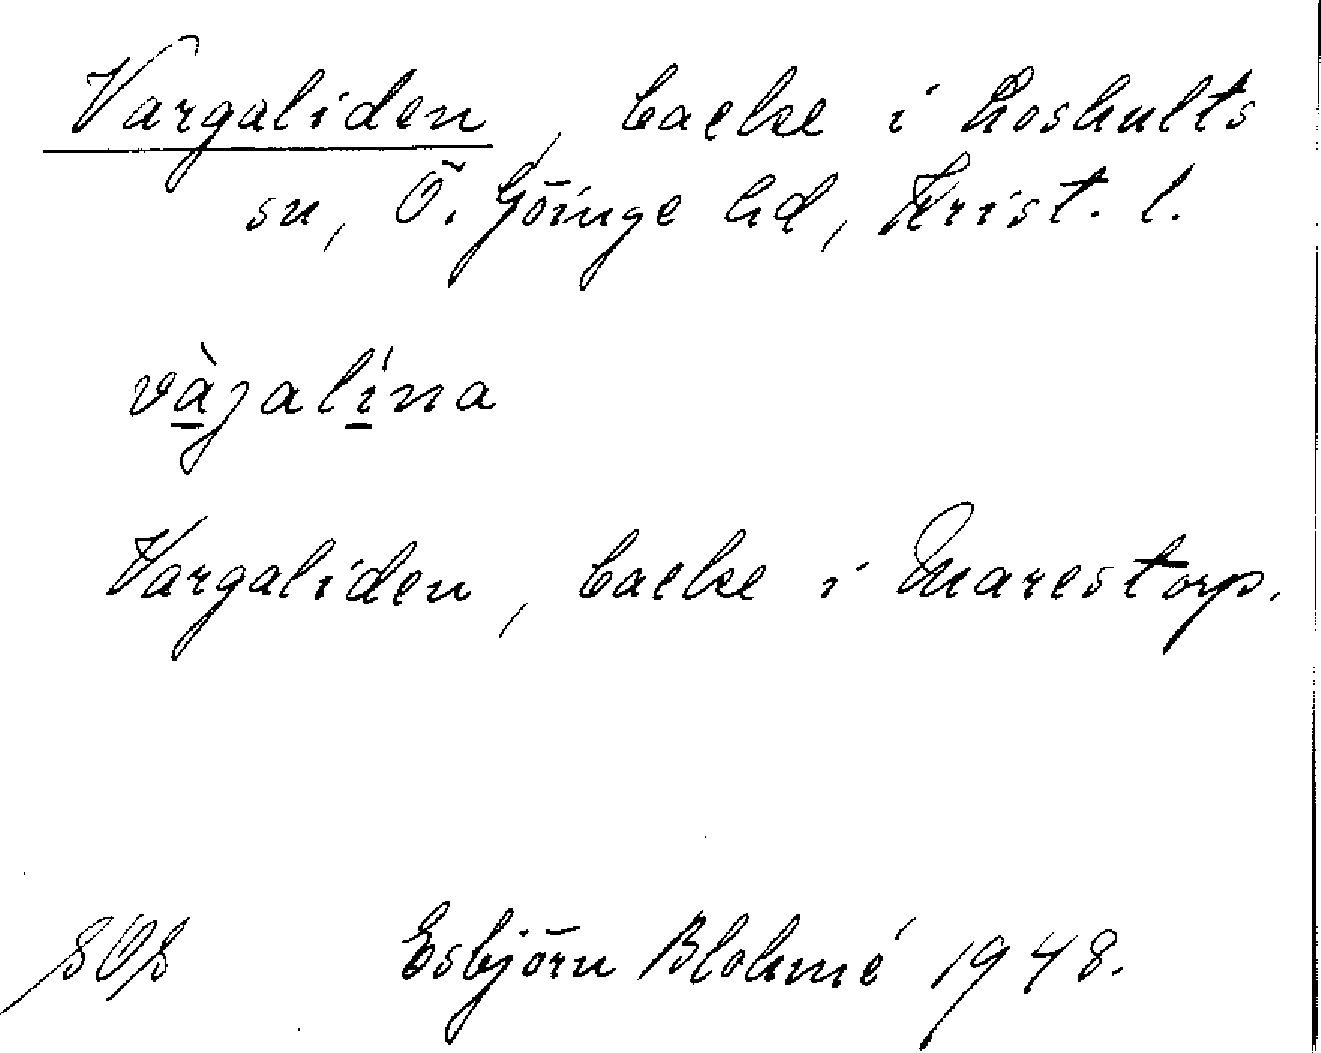 Vargaliden, backe i Loshults
sn, Ö. Göinge hd, Krist. l.
vàjalína
Vargaliden, backe i Marestorp.
Esbjörn Blohmé 1948.